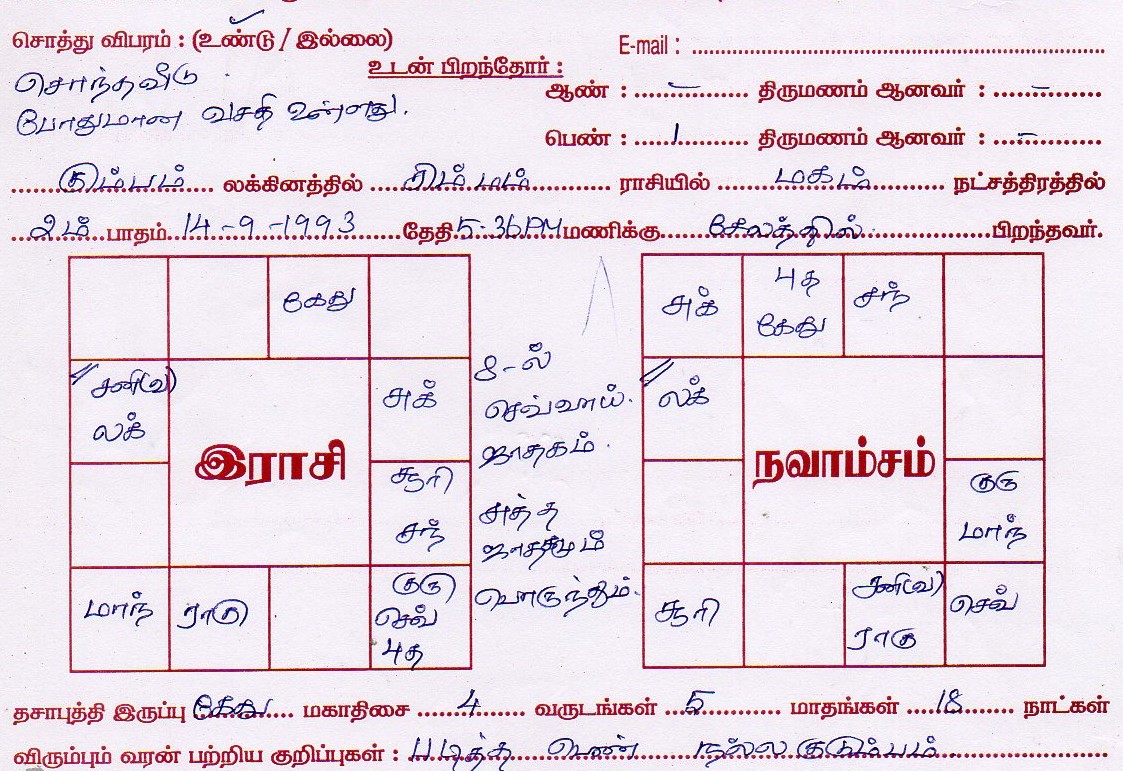 சொத்து விபரம் : (உண்டு / இல்லை)
E-mail :
சொந்தவீடு
போதுமான வசதி உள்ளது.
உடன் பிறந்தோர் :
ஆண் : - திருமணம் ஆனவர் : -
பெண் : 1 திருமணம் ஆனவர் : -
கும்பம் லக்கினத்தில் சிம்மம் ராசியில் மகம் நட்சத்திரத்தில்
2ம் பாதம் 14-9-1993 தேதி 5-36PM மணிக்கு சேலத்தில் பிறந்தவர்.
கேது
சனி(வ)
லக்
சுக்
இராசி
சூரி
சந்
மாந்
ராகு
குரு
செவ்
புத
8-ல்
செவ்வாய்
ஜாதகம்.
சுத்த
பொருந்தும்.
சுக்
புத
கேது
சந்
லக்
நவாம்சம்
குரு
மாந்
சூரி
சனி(வ)
ராகு
செவ்
தசாபுத்தி இருப்பு கேது மகாதிசை 4 வருடங்கள் 5 மாதங்கள் 18 நாட்கள்
விரும்பும் வரன் பற்றிய குறிப்புகள் : படித்த பெண் நல்ல குடும்பம்